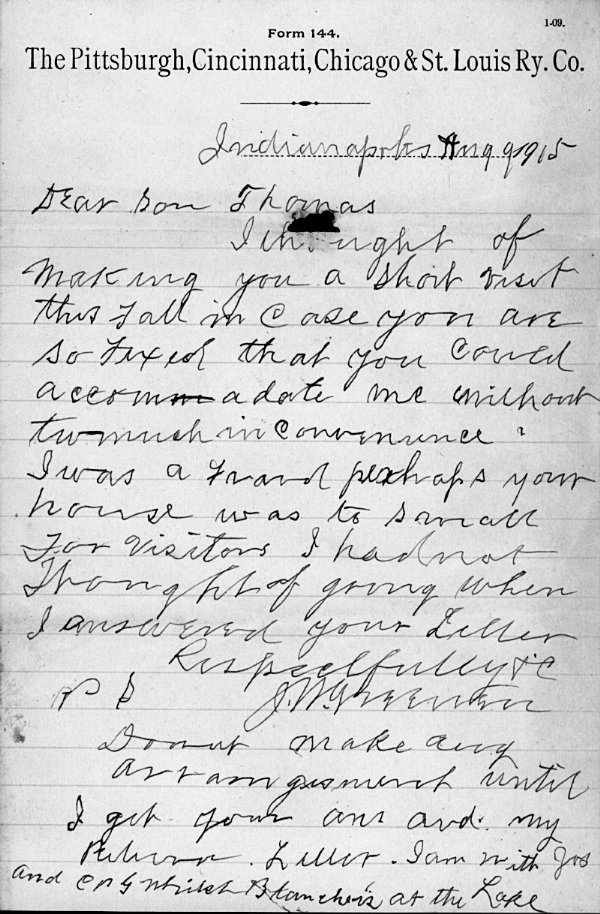 1-09.
Form 144.
The Pittsburgh, Cincinnati, Chicago & St. Louis Ry. Co.
Indianapolis Aug 9 1915
Dear Son Thomas
I thought of
making you a short visit
this Fall in Case you are
so Fixed that you Could
accommadate me without
two much in Convenience
I was a Fraid perhaps your
house was to small
For Visitors I had not
Thought of going when
I answered your Letter
Respectfully &C
P S J. W.
Do not make any
arrangement until
I get your ans and my
Return Letter. I am with Jos
and whilst Blanche is at the Lake